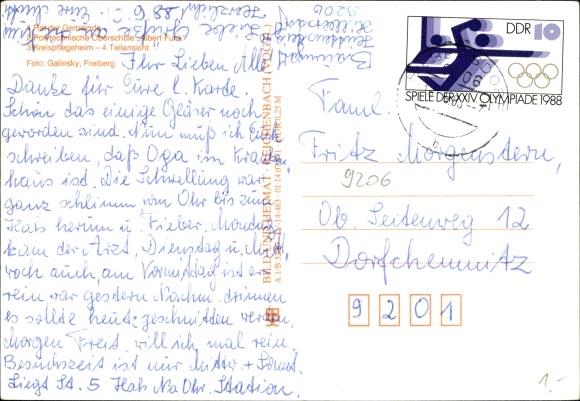 1 Rat der Gemeinde
2 Polytechnische Oberschule "Albert Funk"
3 Kreispflegeheim – 4 Teilansicht
Foto: Galinsky, Freiberg
Ihr Lieben Alle
Danke für Eure l. Karte.
Schön das einige Gläser noch
geworden sind. Nun muß ich Euch
schreiben, daß Opa im Kranken
haus ist. Die Schwellung war
ganz schlimm vom Ohr bis zum
Hals herum u. Fieber. Montag
kam der Arzt, Dienstag u. Mittw.
noch auch, am Vormittag ist er
rein war gestern Nachm. drinnen
es sollte heute geschnitten werden.
Morgen Freit. will ich mal rein.
Besuchszeit ist nur Mittw. + Sonnt.
Liegt St. 5 Hals Na Ohr. Station.
BILD UND HEIMAT · REICHENBACH (VOGTL)
DDR 10
SPIELE DER XXIV. OLYMPIADE 1988
Faml.
Fritz Morgenstern,
9206
Ob. Seitenweg 12
Dorfchemnitz
9201
1.-